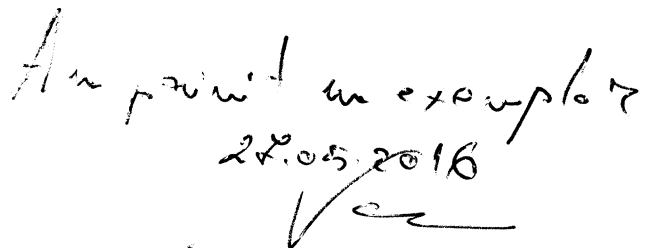 Am primit un exemplar
27.05.2016